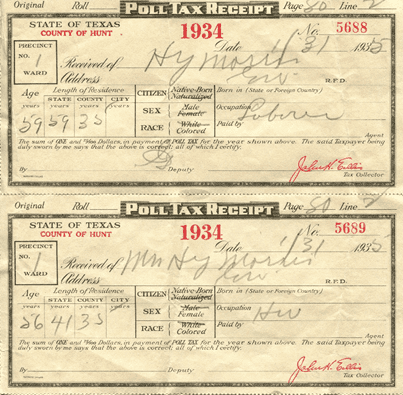 Original Roll POLL TAX RECEIPT Page 80 Line 2
STATE OF TEXAS
COUNTY OF HUNT
1934
No. 5688
Date 1/31 1935
PRECINCT
NO. 1
WARD
Received of Hy Morris
Address
R.F.D.
Age
years
59
Length of Residence
STATE COUNTY CITY
years years years
59 35
CITIZEN Native-Born Naturalized
SEX Male Female
RACE White Colored
Born in (State or Foreign Country)
Occupation Laborer
Paid by
Agent
The sum of ONE and Dollars, in payment of POLL TAX for the year shown above. The said Taxpayer being
duly sworn by me says that the above is correct; all of which I certify.
By Deputy
Tax Collector
Original Roll POLL TAX RECEIPT Page 80 Line 2
STATE OF TEXAS
COUNTY OF HUNT
1934
No. 5689
Date 1/31 1935
PRECINCT
NO. 1
WARD
Received of Mrs Hy Morris
Address
R.F.D.
Age
years
56
Length of Residence
STATE COUNTY CITY
years years years
41 35
CITIZEN Native-Born Naturalized
SEX Male Female
RACE White Colored
Born in (State or Foreign Country)
Occupation Hw
Paid by
Agent
The sum of ONE and Dollars, in payment of POLL TAX for the year shown above. The said Taxpayer being
duly sworn by me says that the above is correct; all of which I certify.
By Deputy
Tax Collector